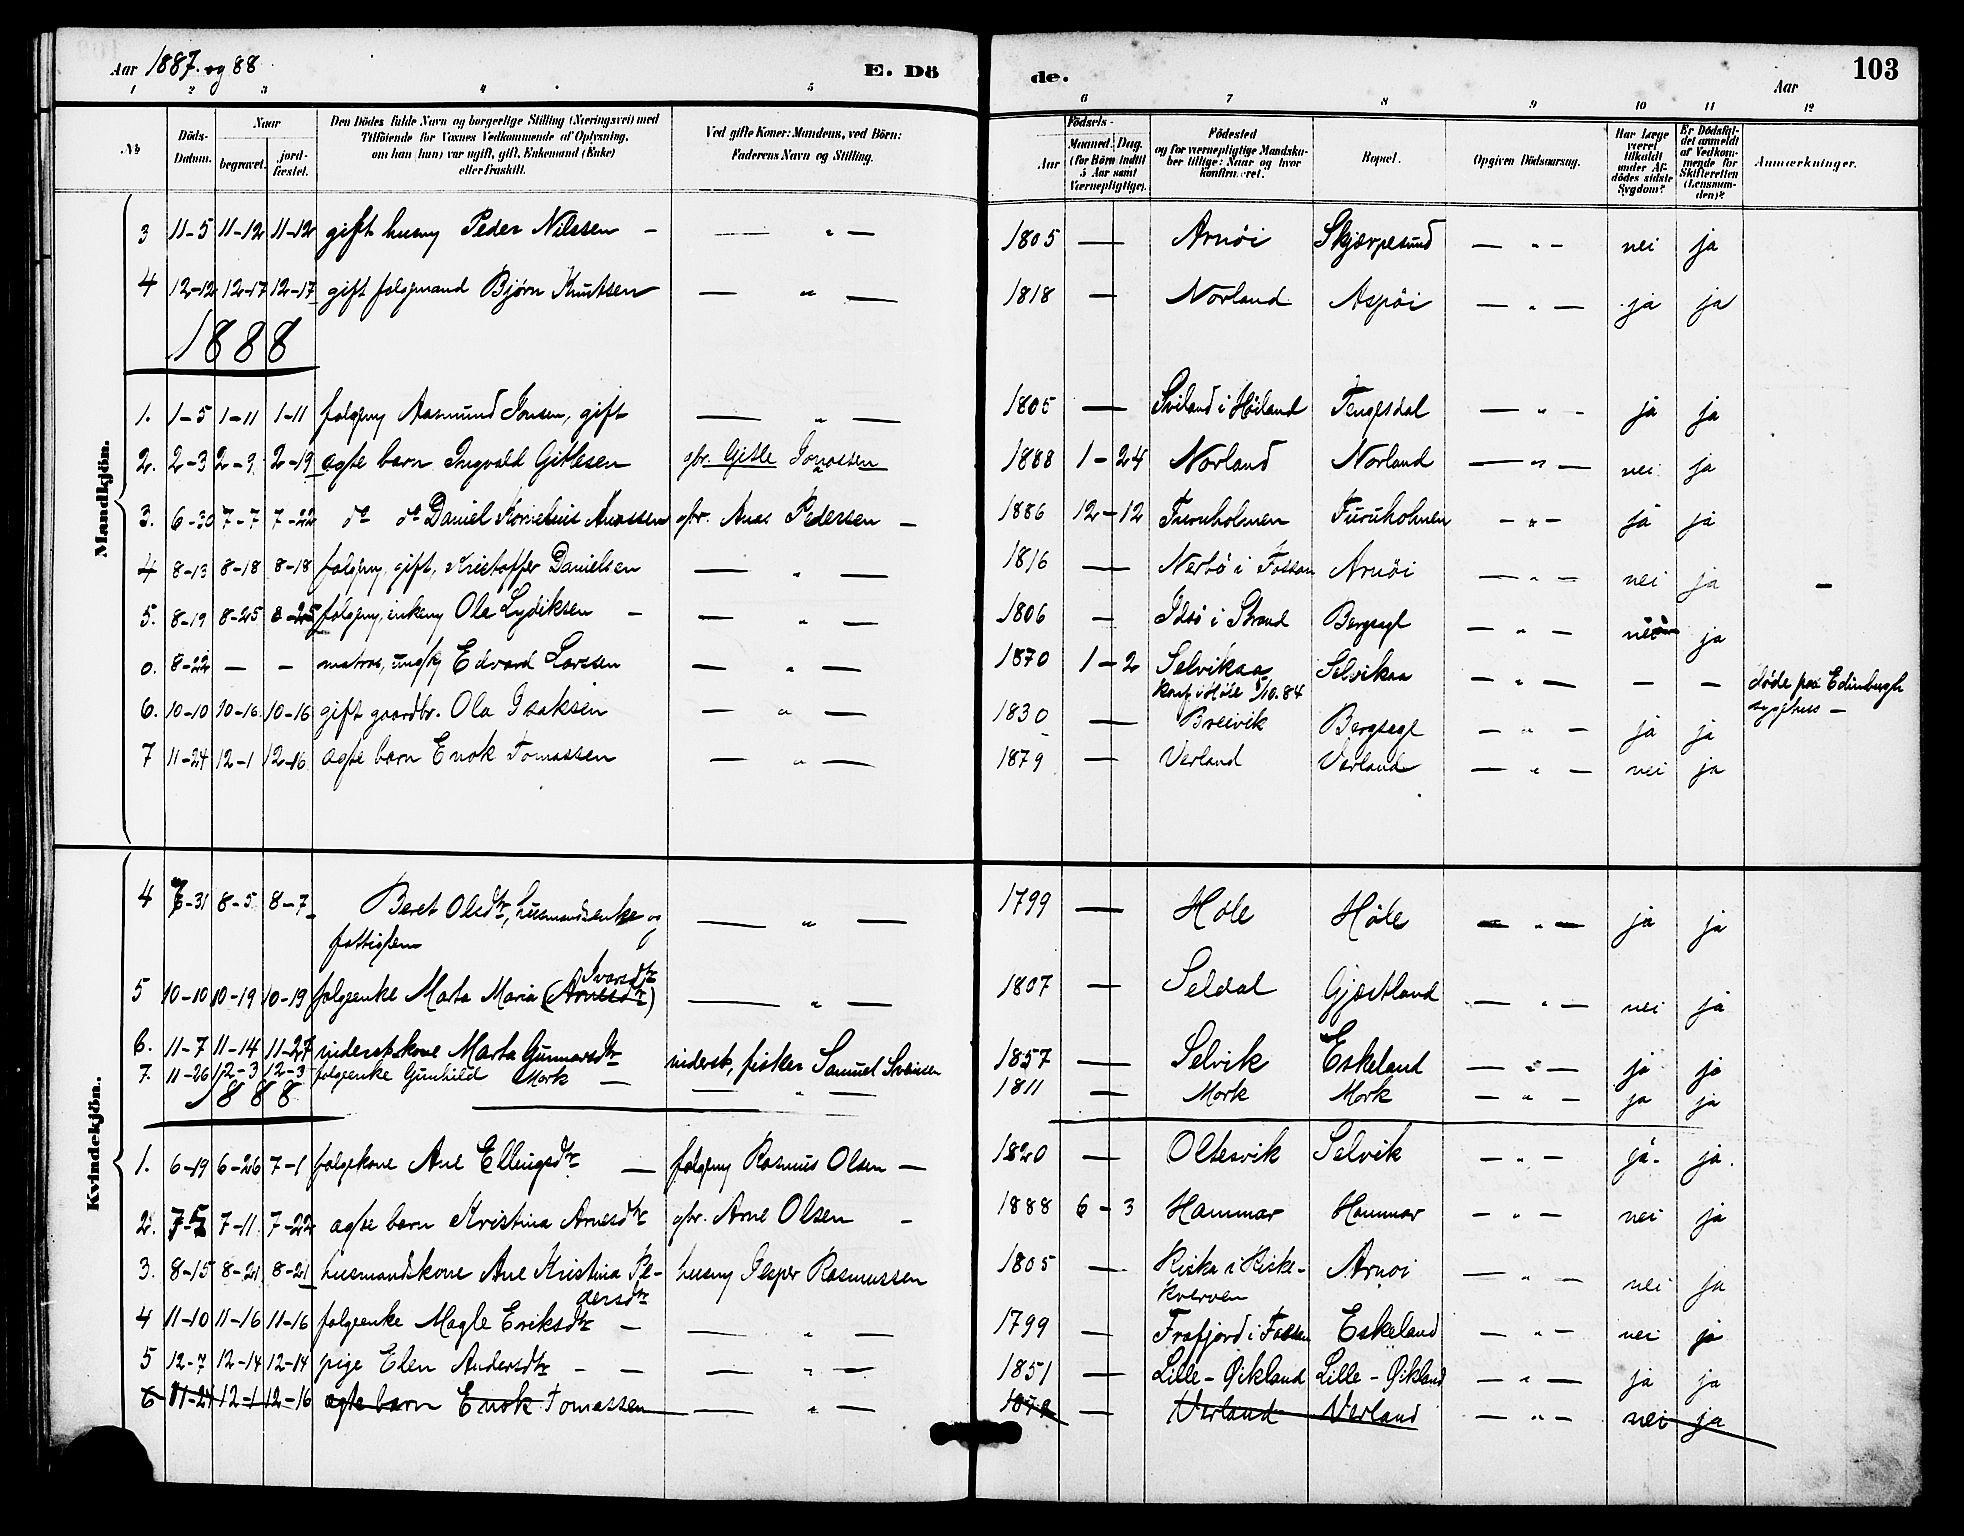 Aar 1887. og 88 E. Dö de. Aar 103
1 2 3 4 5 6 7 8 9 10 11 12
№ Döds-Datum. Naar begravet. jord-fæstet. Den Dödes fulde Navn og borgerlige Stilling (Næringsvei) med Tilföiende for Voxnes Vedkommende af Oplysning, om han (hun) var ugift, gift, Enkemand (Enke) eller fraskilt. Ved gifte Koner: Mandens, ved Börn: Faderens Navn og Stilling. Födsels- Aar Maaned. Dag. (for Börn indtil 5 Aar samt Værnepligtige). Födested og for værnepligtige Mandskaber tillige: Naar og hvor konfirmeret. Bopæl. Opgiven Dödsaarsag. Har Læge været tilkaldt under Afdödes sidste Sygdom? Er Dödsfaldet anmeldt af Vedkommende for Skifteretten (Lensmanden)? Anmærkninger.
Mandkjön.
3 11-5 11-12 11-12 gift husmg Peder Nilssen — — " — 1805 — Arnöi Skjærpesund — " — nei ja
4 12-12 12-17 12-17 gift folgemand Björn Knutsen — " — 1818 — Norland Aspöi — " — ja ja
1888
1. 1-5 1-11 1-11 folgemg Aasmund Jonsen, gift — " — 1805 — Sviland i Höiland Tengesdal — " — ja ja
2. 2-3 2-9 2-19 ægte barn Ingvald Gitlesen gbr. Gitle Jonassen 1888 1-24 Norland Norland — " — nei ja
3. 6-30 7-7 7-22 do do Daniel Kornelius Anassen gbr. Anas Pedersen — 1886 12-12 Furuholmen Furuholmen — " — ja ja
4 8-13 8-18 8-18 folgemg, gift, Kristoffer Danielsen — " — 1816 — Nerbö i Fossan Arnöi — " — nei ja —
5. 8-19 8-25 8-25 folgemg, enkemg Ole Lydiksen — — " — 1806 — Idsö i Strand Bergsagl — " — ja
0. 8-22 — — matros, ungkg Edvard Larssen — " — 1870 1-2 Selvikaa Selvikaa — " — — — döde paa Edinburgh
konf i Höle 5/10.84 sygehus —
6. 10-10 10-16 10-16 gift gaardbr. Ola Isaksen — " — 1830 — Breivik Bergsagl — " — ja ja
7 11-24 12-1 12-16 ægte barn Enok Tomassen — " — 1879 — Verland Verland — " — nei ja
Kvindekjön.
4 7-31 8-5 8-7 Beret Olsdtr, husmandsenke og — " — 1799 — Höle Höle — " — ja ja
fattiglem
Ivarsdtr
5 10-10 10-19 10-19 folgeenke Marta Maria (Arnesdtr) — " — 1807 — Seldal Gjæstland — " — nei ja
6. 11-7 11-14 11-27 inderstkone Marta Gunnarsdtr inderst, fisker Samuel Sveinsen 1857 — Selvik Eskeland — " — ja ja
7. 11-26 12-3 12-3 folgeenke Gunhild Mork — — " — 1811 — Mork Mork — " — ja ja
1888
1. 6-19 6-26 7-1 folgekone Ane Ellingsdtr — folgemg Rasmus Olsen — 1820 — Oltesvik Selvik — " — ja. ja.
2. 7-5 7-11 7-22 ægte barn Kristina Arnesdtr gbr. Arne Olsen — 1888 6-3 Hammar Hammar — " — nei ja
3. 8-15 8-21 8-21 husmandskone Ane Kristina Pe- husmg Jesper Rasmussen 1805 — Riska i Riske- Arnöi — " — nei ja
dersdtr kverven
4 11-10 11-16 11-16 folgeenke Magle Eriksdtr — — " — 1799 — Frafjord i Fossan Eskeland — " — nei ja
5 12-7 12-14 12-14 pige Elen Andersdtr — — — " — 1851 — Lille-Øikland Lille-Øikland — " — ja ja
6 11-24 12-1 12-16 ægte barn Enok Tomassen — " — 1879 — Verland Verland — " — nei ja